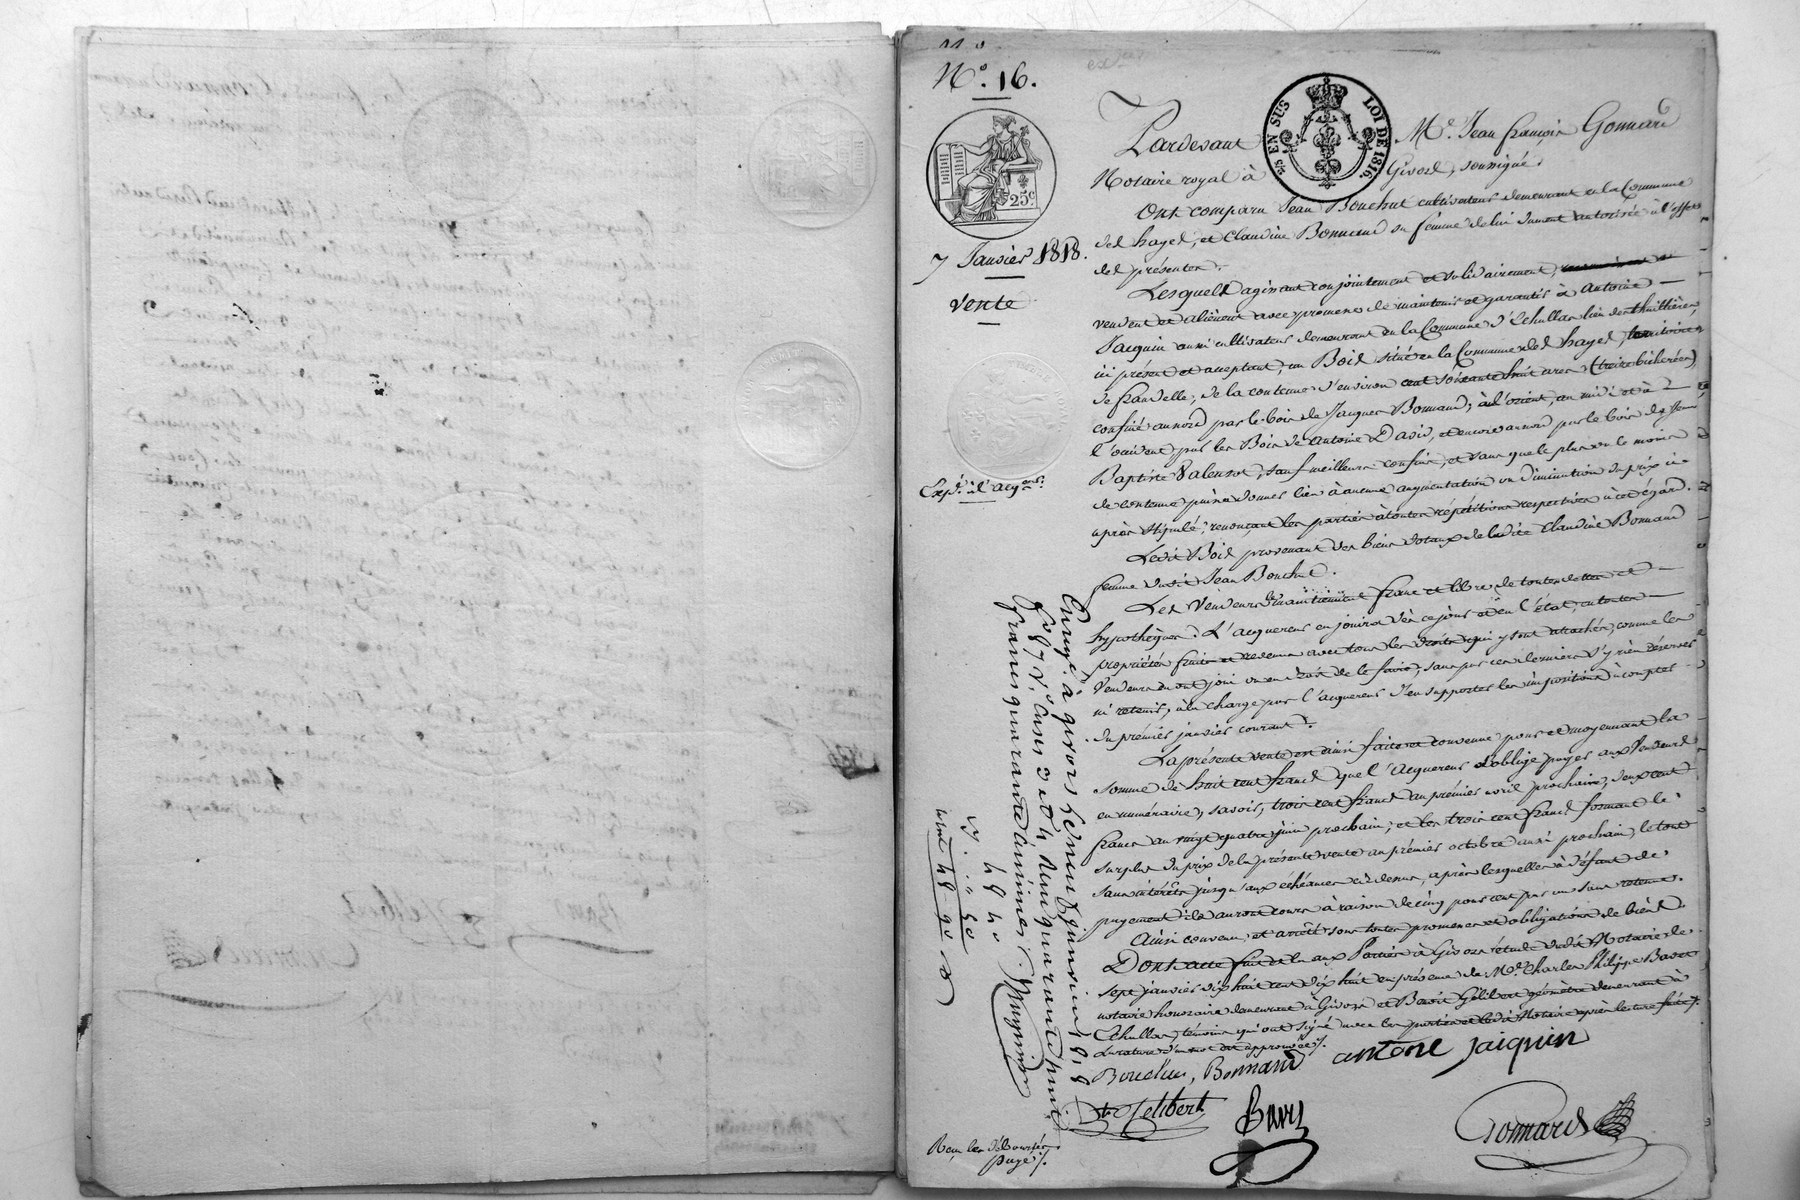 N.° 16.
25c
7 Janvier 1818.
vente
Exp.é à l'acq.eur
EN SUS LOI DE 1816.
Pardevant M.e Jean françois Gonnard
Notaire royal à Givors, soussigné.
Ont comparu Jean Bouchut cultivateur demeurant en la Commune
des hayes, et Claudine Bonnard sa femme de lui dument autorisée à l'effet
des présentes.
Lesquels agissant conjointement et solidairement,
vendent et aliènent avec promesse de maintenir et garantir à Antoine
Jacquin aussi cultivateur demeurant en la Commune d'Echallas lieu de
ici présent et acceptant, un Bois situé en la Commune des hayes, territoire
de frandelle, de la contenue d'environ cent soixante huit ares (treize bicherées)
confiné au nord par le bois de Jacques Bonnard; à l'orient, au midi et à
l'occident par les Bois de Antoine David, et encore au nord par le bois de Jean
Baptiste Valensot, sauf meilleurs confins, et sans que le plus ou le moins
de contenue puisse donner lieu à aucune augmentation ou diminution du prix ci
après stipulé, renonçant les parties à toutes répétitions respectives à cet égard.
Ledit Bois provenant des biens dotaux de ladite Claudine Bonnard
femme dudit Jean Bouchut.
Les Vendeurs maintiennent franc et libre de toutes dettes et
hypothèques. L'acquereur en jouira dès ce jour et en l'état, en toutes
propriétés fruits et revenus avec tous les droits qui y sont attachés, comme les
Vendeurs en ont joui ou eu droit de le faire, sans par ces derniers s'y rien réserver
ni retenir, à la charge par l'acquereur d'en supporter les impositions à compter
du premier janvier courant.
La présente vente est ainsi faite et convenue pour et moyennant la
somme de huit cent francs que l'acquereur s'oblige payer aux Vendeurs
en numéraire, savoir, trois cent francs au premier avril prochain, deux cent
francs au vingt quatre juin prochain, et les trois cent francs formant le
surplus du prix de la présente vente au premier octobre aussi prochain, le tout
sans intérêts jusqu'aux échéances ci dessus, après lesquelles à défaut de
payement ils auront cours à raison de cinq pour cent par an sans retenue.
Ainsi convenu et arrêté sous toutes promesses et obligations de biens.
Dont acte fait et lu aux Parties à Givors étude dudit Notaire le
sept janvier dix huit cent dix huit en présence de M.e Charles Philippe Bavet
notaire honoraire demeurant à Givors et Benoit Gelibert géomètre demeurant à
Echallas, témoins qui ont signé avec les parties et ledit Notaire après lecture faite
la rature d'un mot est approuvée
Bouchut, Bonnard antoine jaiquin
Bt Gelibert Gonnard
Enrgé à givors le neuf janvier 1818
fo 97 v.o cases 3 et 4 Reçu quarante huit
francs quarante centimes.
48 40
48 90
Reçu les déboursés
payé